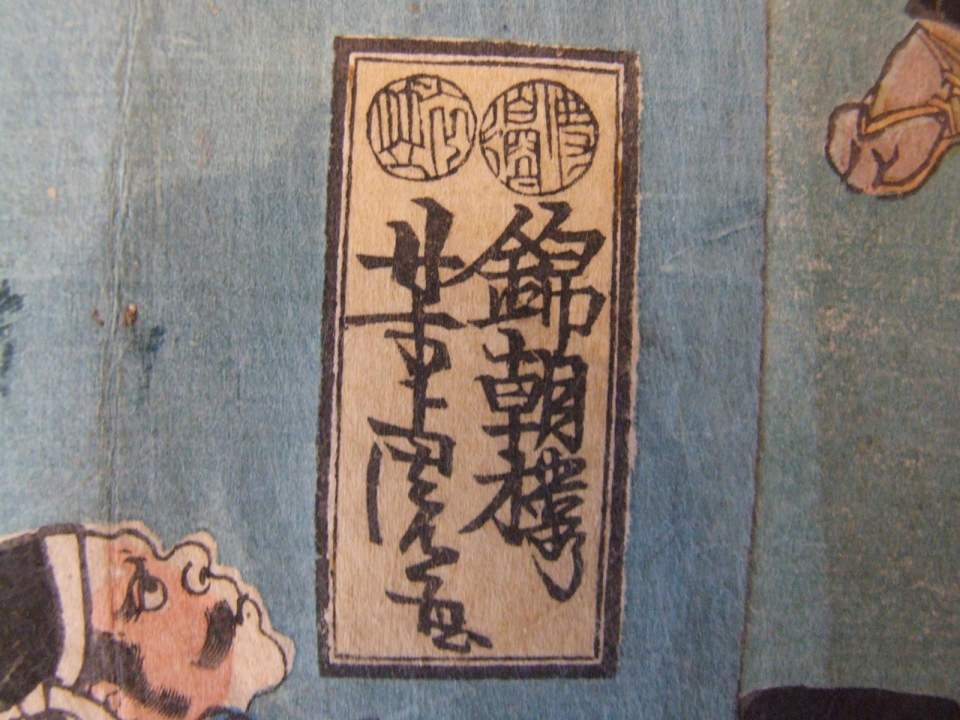 錦朝樓
芳虎画